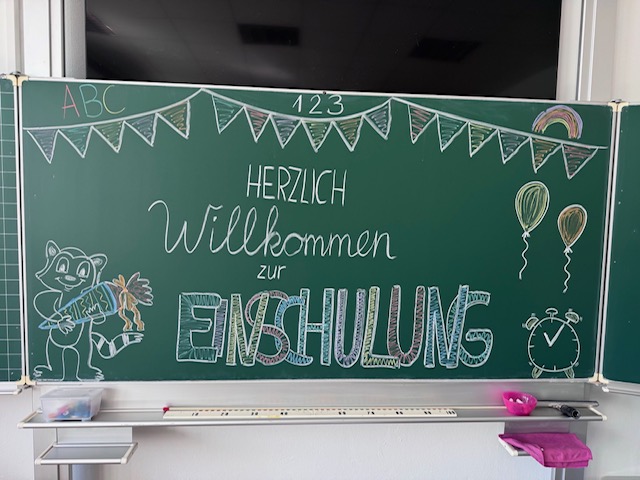 ABC
123
HERZLICH
Willkommen
zur
EINSCHULUNG